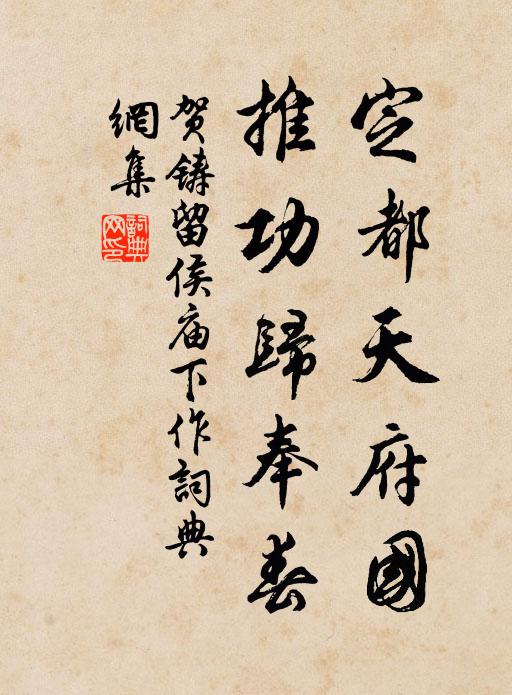 定都天府國
推功歸奉春
贺鑄留侯庙下作詞典
網集
詞典网印